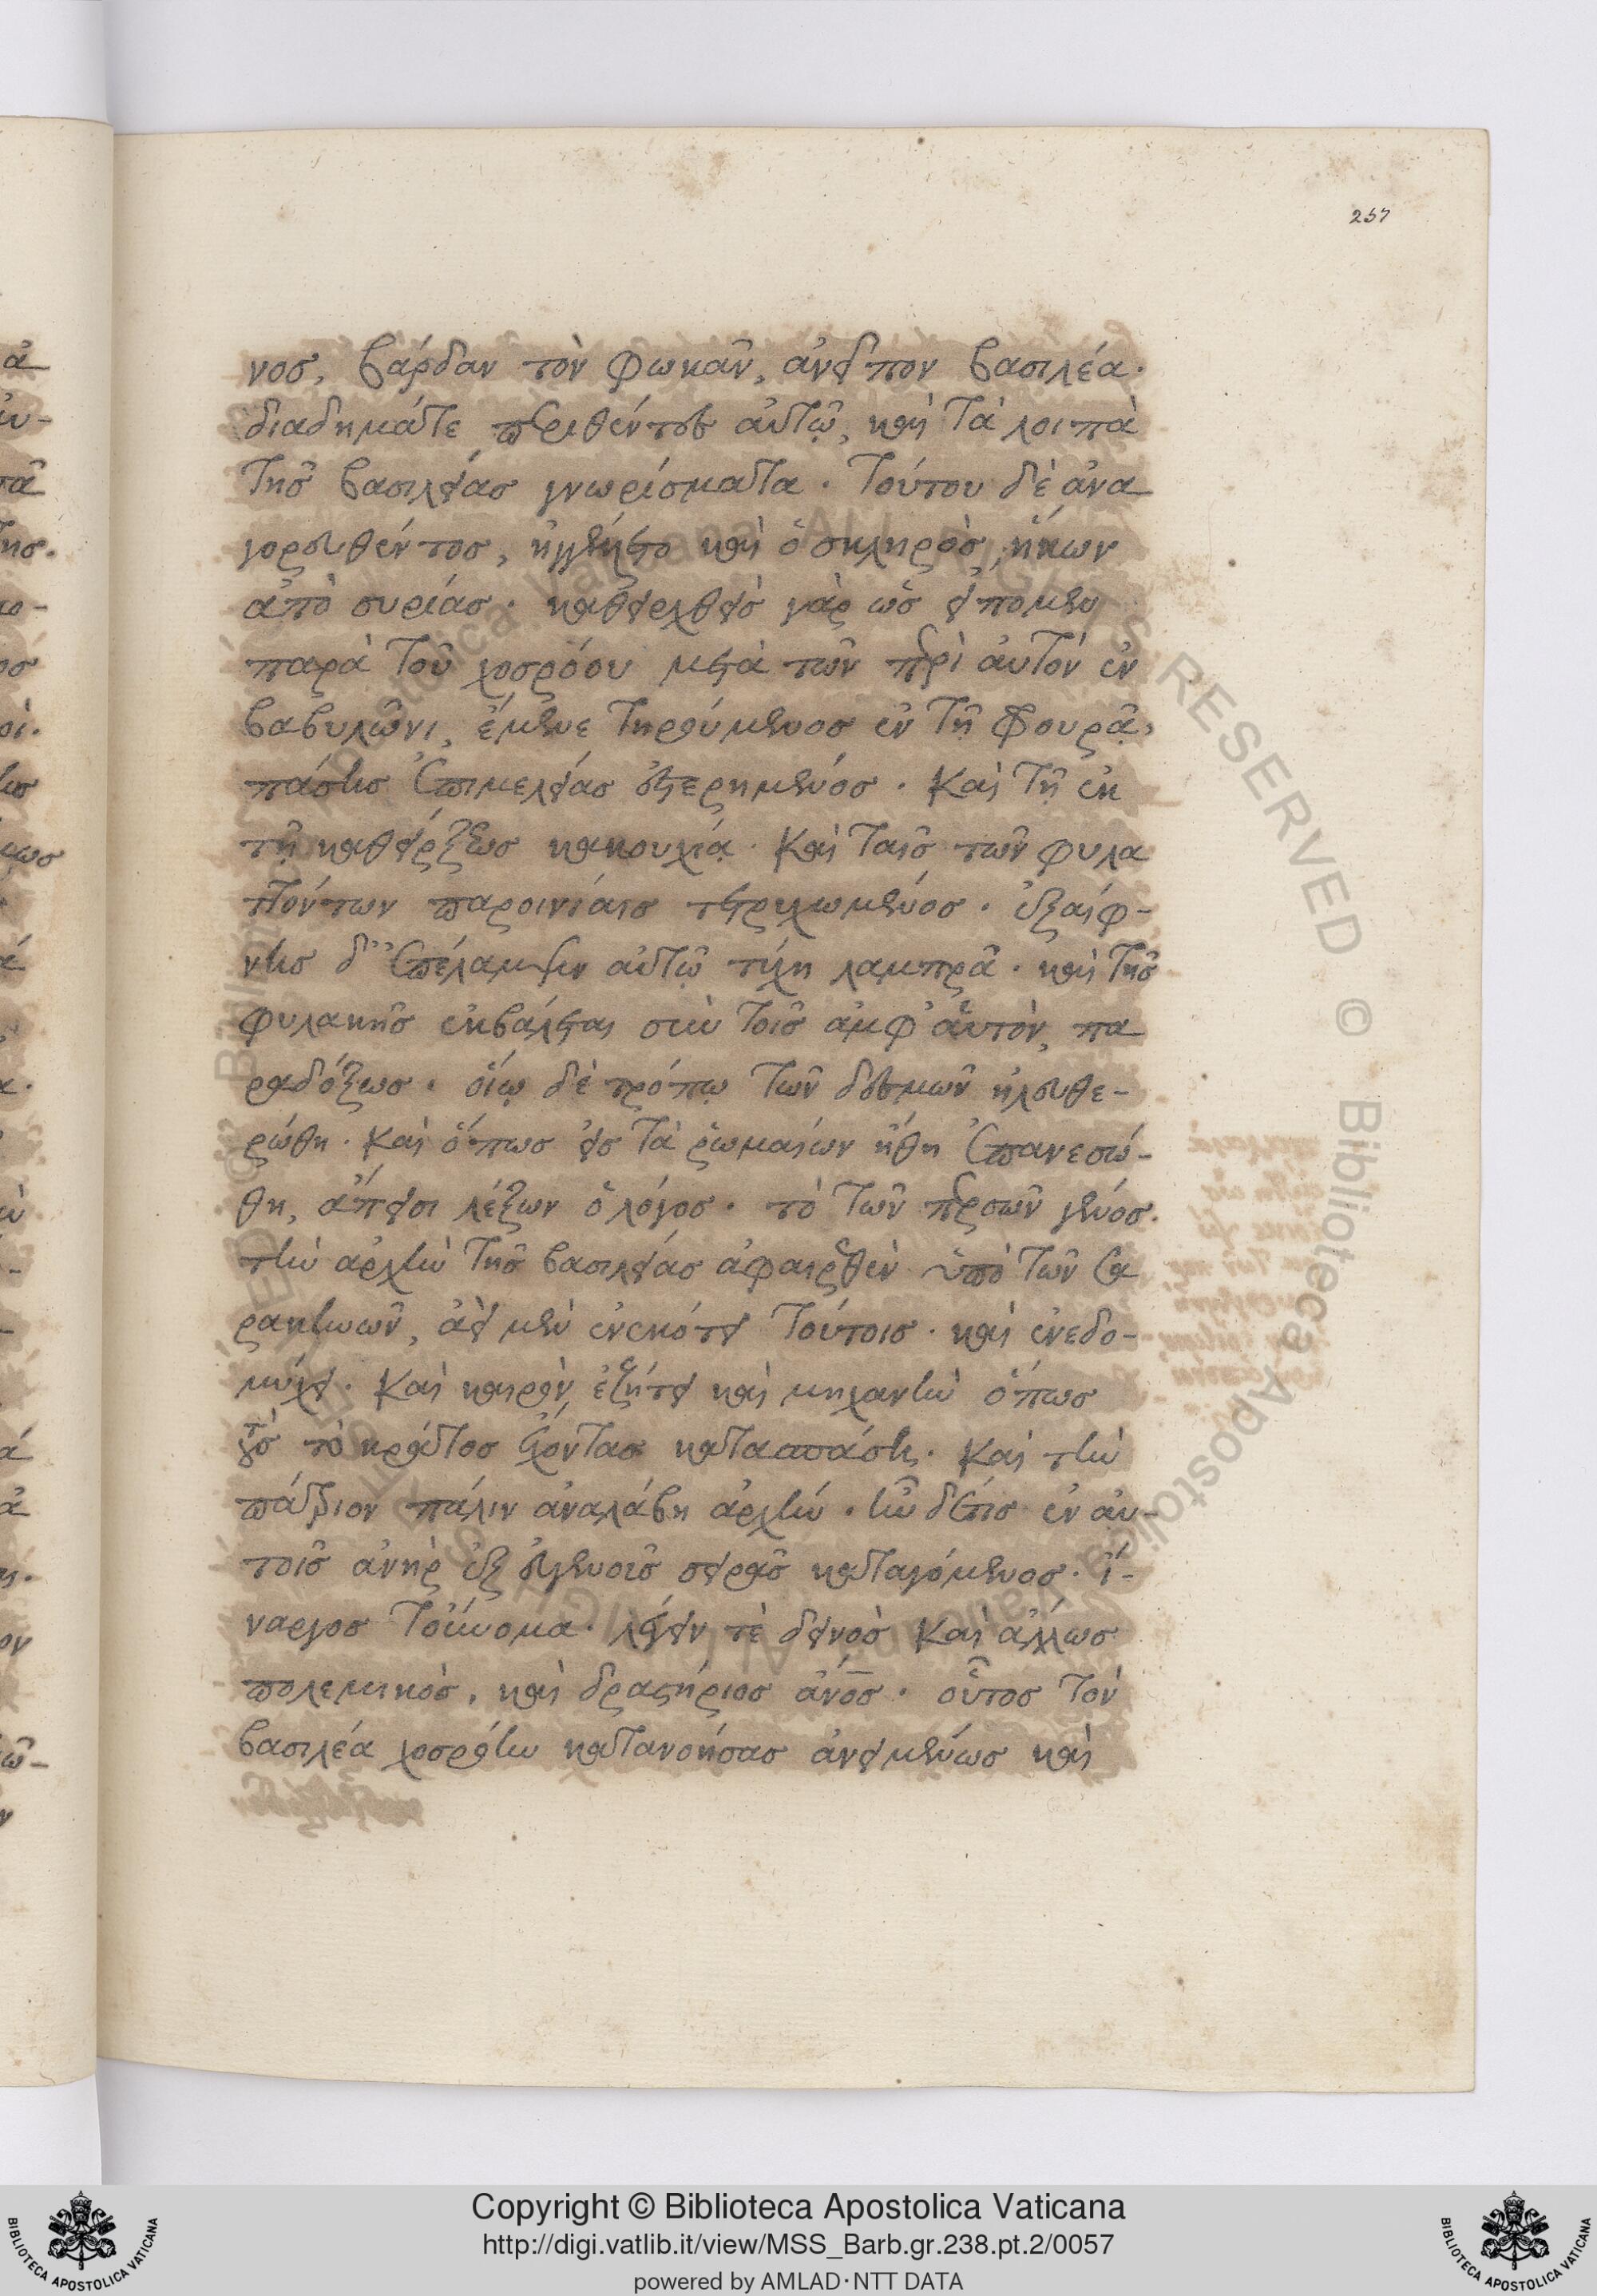 257
νοσ, βάρδαν τὸν φωκᾶν, ἀνεῖπον βασιλέα.
διαδημά τε περιθέντες αὐτῷ, καὶ τὰ λοιπὰ
τῆσ βασιλείασ γνωρίσματα. τούτου δὲ ἀνα
γορευθέντοσ, ἠγγέλλετο καὶ ὁ σκληρὸσ, ἥκων
ἀπὸ συρίασ. καθειρχθεὶσ γὰρ ὡσ εἴπομεν
παρὰ τοῦ χοσρόου μετὰ τῶν περὶ αὐτὸν ἐν
βαβυλῶνι, ἔμενε τηρούμενοσ ἐν τῇ φουρᾷ,
πάσησ ἐπιμελείασ ἐστερημένοσ. καὶ τῇ ἐκ
τῆ καθείρξεωσ κακουχίᾳ. καὶ ταῖσ τῶν φυλα
ττόντων παροινίαισ τετρυχωμένοσ. ἐξαίφ-
νησ δ' ἐπέλαμψεν αὐτῷ τύχη λαμπρᾶ. καὶ τῆσ
φυλακῆσ ἐκβάλεται σὺν τοῖσ ἀμφ' αὐτὸν, πα
ραδόξωσ. οἵῳ δὲ τρόπῳ τῶν δεσμῶν ἠλευθε-
ρώθη. καὶ ὅπωσ εἰσ τὰ ῥωμαίων ἤθη ἐπανεσώ-
θη, ἄπεισι λέξων ὁ λόγοσ. τὸ τῶν περσῶν γένοσ.
τὴν ἀρχὴν τῆσ βασιλείασ ἀφαιρεθὲν ὑπὸ τῶν σα
ρακηνῶν, ἀεὶ μὲν ἐνεκότει τούτοισ. καὶ ἐνεδο-
μύχει. καὶ καιρὸν ἐζήτει καὶ μηχανὴν ὅπωσ
τοὺσ τὸ κράτοσ ἔχοντασ κατασπάση. καὶ τὴν
πάτριον πάλιν ἀναλάβη ἀρχήν. ἦν δέ τισ ἐν αὐ-
τοῖσ ἀνὴρ ἐξ εὐγενοῖσ σειρᾶσ καταγόμενοσ. ἴ-
ναργοσ τοὔνομα. λέγειν τὲ δεινὸσ καὶ ἄλλωσ
πολεμικὸσ, καὶ δραστήριοσ ἄνοσ. οὗτοσ τὸν
βασιλέα χοσρόην κατανοήσασ ἀνειμένωσ καὶ
Copyright © Biblioteca Apostolica Vaticana
http://digi.vatlib.it/view/MSS_Barb.gr.238.pt.2/0057
powered by AMLAD·NTT DATA